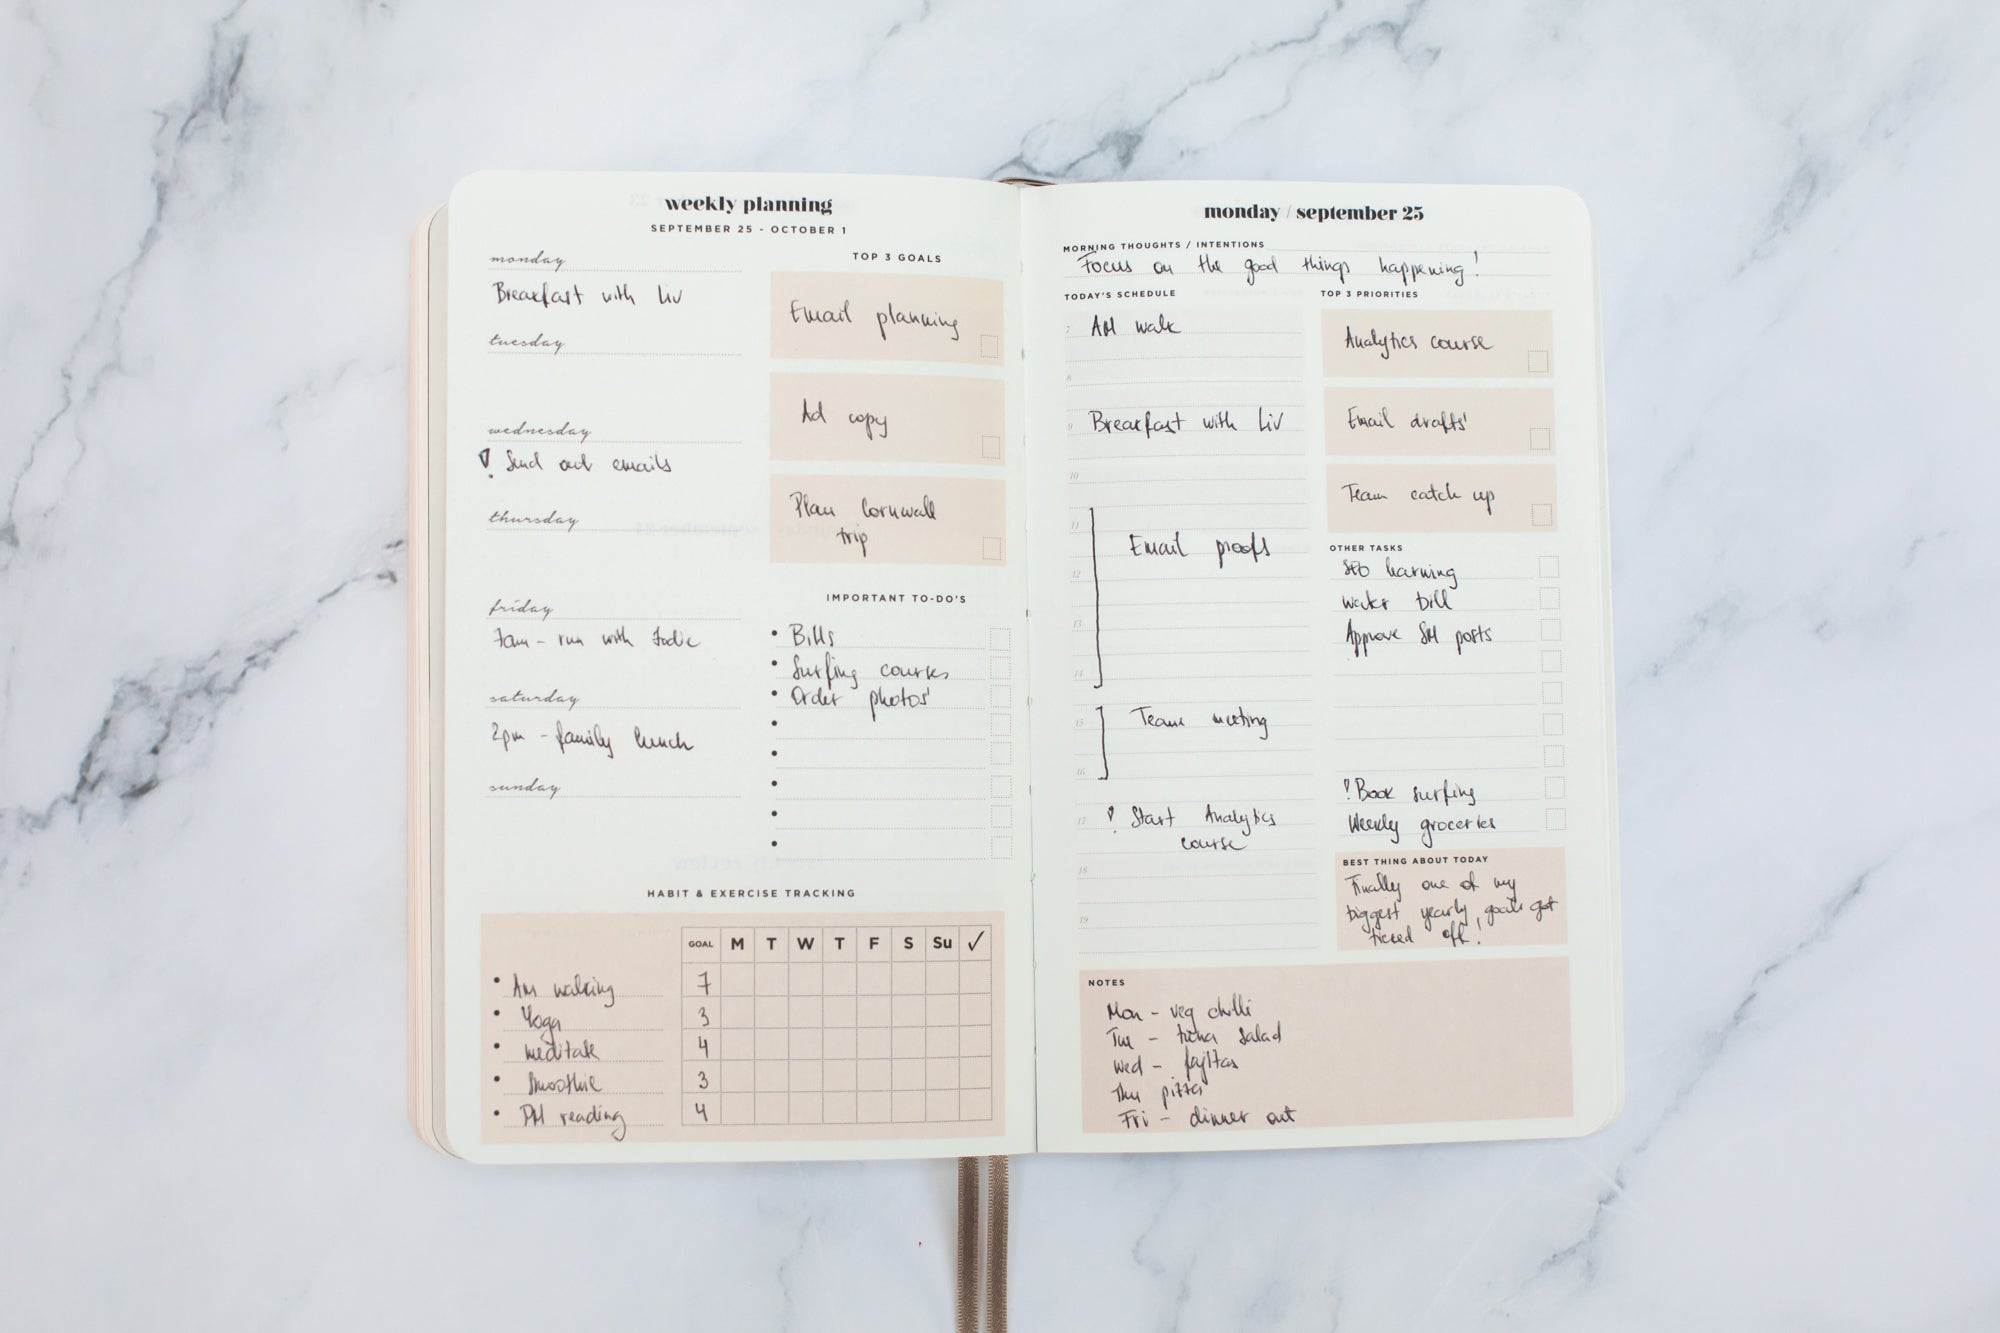 weekly planning
SEPTEMBER 25 - OCTOBER 1
monday
Breakfast with Liv
tuesday
wednesday
! Send out emails
thursday
friday
7am - run with Jodie
saturday
2pm - family lunch
sunday
TOP 3 GOALS
Email planning
Ad copy
Plan Cornwall
trip
IMPORTANT TO-DO'S
• Bills
• Surfing courses
• Order photos!
HABIT & EXERCISE TRACKING
GOAL M T W T F S Su ✓
• AM walking 7
• Yoga 3
• meditate 4
• Smoothie 3
• PM reading 4
monday / september 25
MORNING THOUGHTS / INTENTIONS
Focus on the good things happening!
TODAY'S SCHEDULE
7 AM walk
8
9 Breakfast with Liv
10
11
Email proofs
12
13
14
15 Team meeting
16
17 ! Start Analytics
course
18
19
TOP 3 PRIORITIES
Analytics course
Email drafts!
Team catch up
OTHER TASKS
SEO learning
water bill
Approve SM posts
! Book surfing
Weekly groceries
BEST THING ABOUT TODAY
Finally one of my
biggest yearly goals got
ticked off!
NOTES
Mon - veg chilli
Tue - tuna salad
Wed - fajitas
Thu pizza
Fri - dinner out